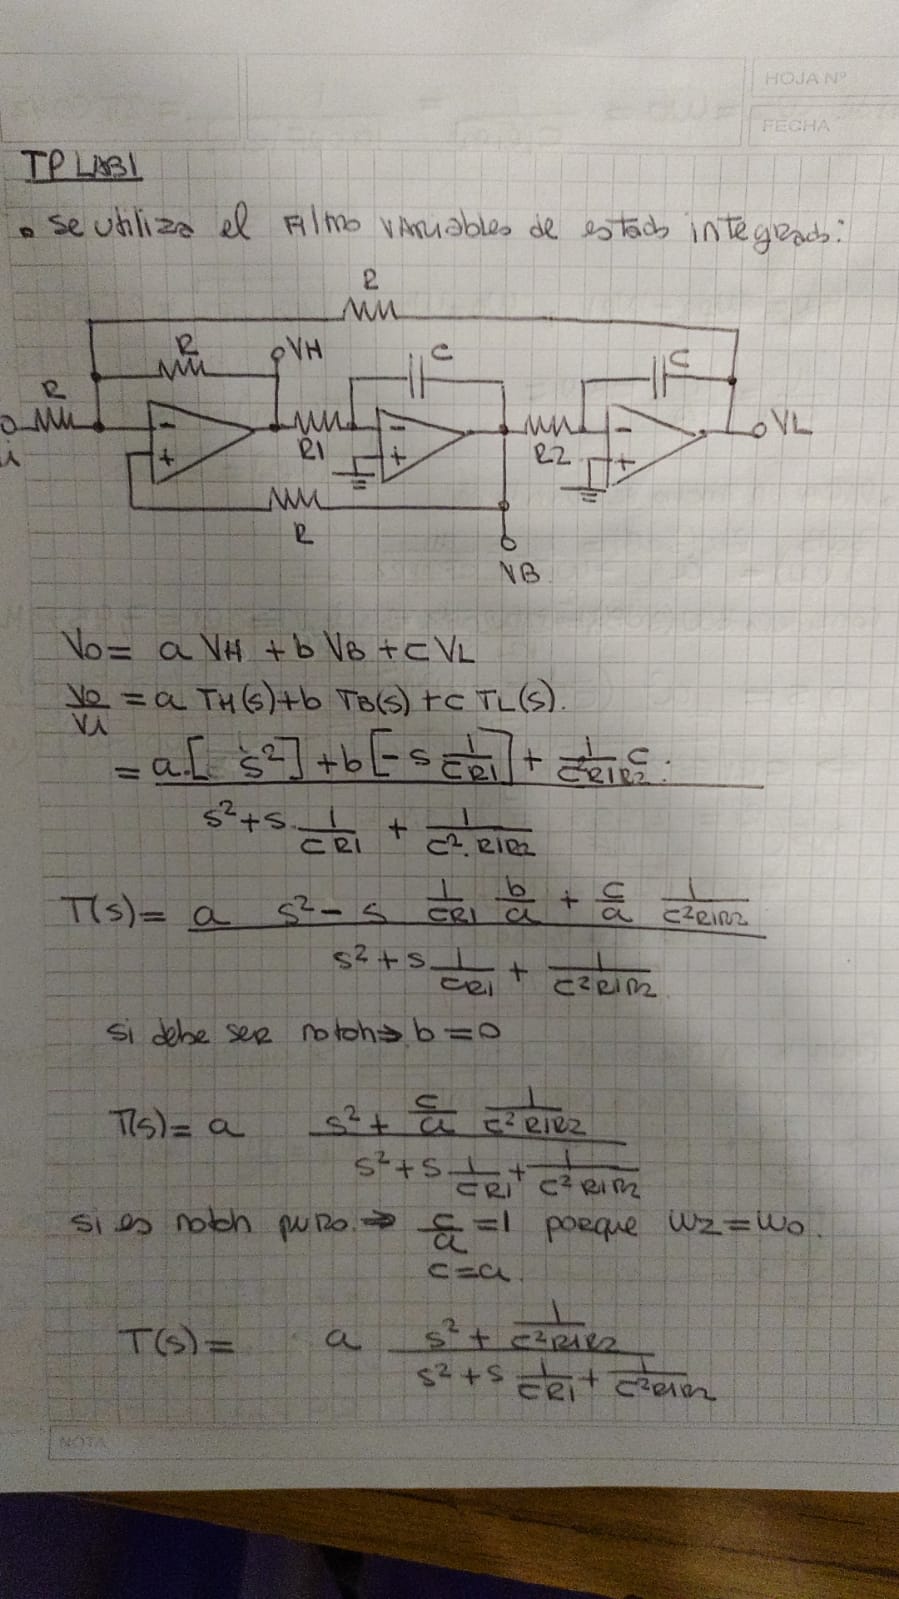 HOJA Nº
FECHA
TP LAB1
• Se utiliza el Filtro variables de estado integrado:
R
R
VH
C
C
R
R1
R2
VL
i
R
VB
Vo = a VH + b VB + c VL
Vo/Vi = a TH(s) + b TB(s) + c TL(s).
= a.[ s²] + b[-s 1/CR1] + 1/C²R1R2 c.
s² + s. 1/CR1 + 1/C².R1R2
T(s) = a s² - s 1/CR1 b/a + c/a 1/C²R1R2
s² + s 1/CR1 + 1/C²R1R2
si debe ser notch ⇒ b = 0
T(s) = a s² + c/a 1/C²R1R2
s² + s 1/CR1 + 1/C²R1R2
si es notch puro. ⇒ c/a = 1 porque wz = wo.
c = a.
T(s) = a s² + 1/C²R1R2
s² + s 1/CR1 + 1/C²R1R2
NOTA